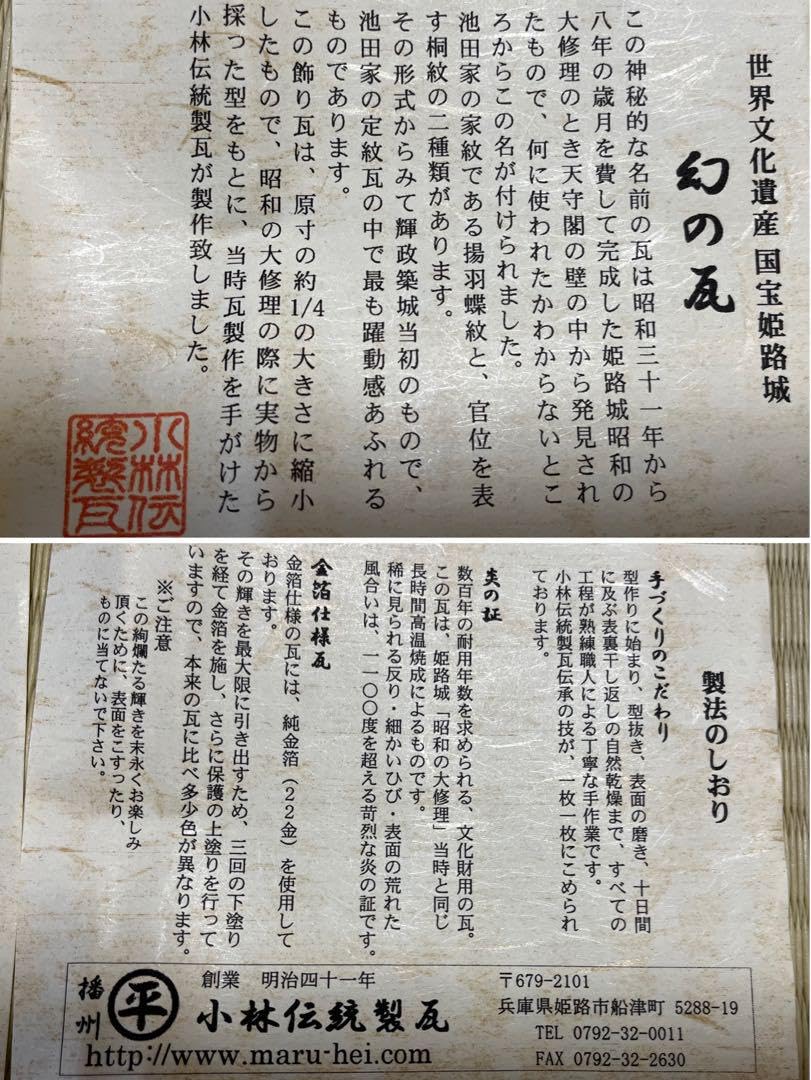 世界文化遺産 国宝姫路城
幻の瓦
この神秘的な名前の瓦は昭和三十一年から
八年の歳月を費して完成した姫路城昭和の
大修理のとき天守閣の壁の中から発見され
たもので、何に使われたかわからないとこ
ろからこの名が付けられました。
池田家の家紋である揚羽蝶紋と、官位を表
す桐紋の二種類があります。
その形式からみて輝政築城当初のもので、
池田家の定紋瓦の中で最も躍動感あふれる
ものであります。
この飾り瓦は、原寸の約1/4の大きさに縮小
したもので、昭和の大修理の際に実物から
採った型をもとに、当時瓦製作を手がけた
小林伝統製瓦が製作致しました。
小林伝
統製瓦
製法のしおり
手づくりのこだわり
型作りに始まり、型抜き、表面の磨き、十日間
に及ぶ表裏干し返しの自然乾燥まで、すべての
工程が熟練職人による丁寧な手作業です。
小林伝統製瓦伝承の技が、一枚一枚にこめられ
ております。
炎の証
数百年の耐用年数を求められる、文化財用の瓦。
この瓦は、姫路城「昭和の大修理」当時と同じ
長時間高温焼成によるものです。
稀に見られる反り・細かいひび・表面の荒れた
風合いは、一一〇〇度を超える苛烈な炎の証です。
金箔仕様瓦
金箔仕様の瓦には、純金箔（２２金）を使用して
おります。
その輝きを最大限に引き出すため、三回の下塗り
を経て金箔を施し、さらに保護の上塗りを行って
いますので、本来の瓦に比べ多少色が異なります。
※ご注意
この絢爛たる輝きを末永くお楽しみ
頂くために、表面をこすったり、
ものに当てないで下さい。
創業 明治四十一年
播州 平 小林伝統製瓦
http://www.maru-hei.com
〒679-2101
兵庫県姫路市船津町 5288-19
TEL 0792-32-0011
FAX 0792-32-2630